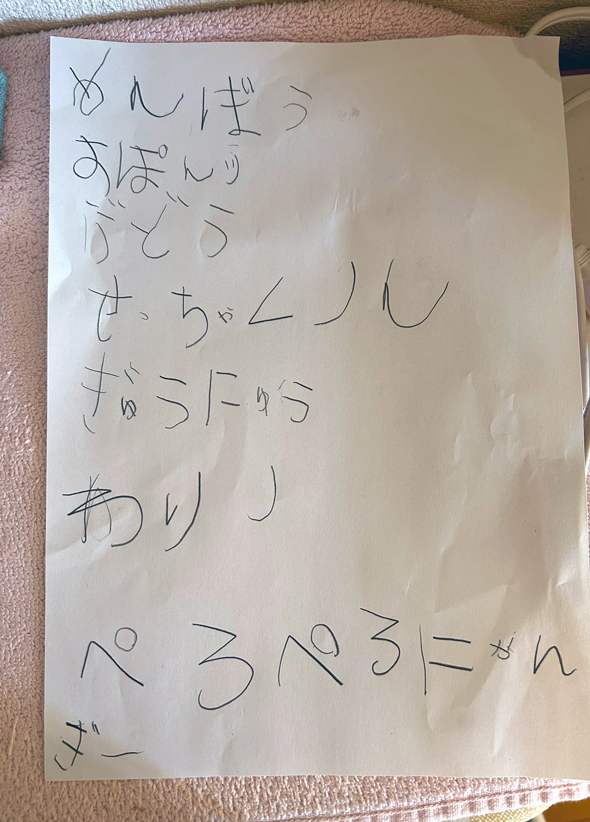 めんぼう
すぽんじ
ぶどう
せっちゃく
ぎゅうにゅう
わり
ぺろぺろにゃん
ぎー